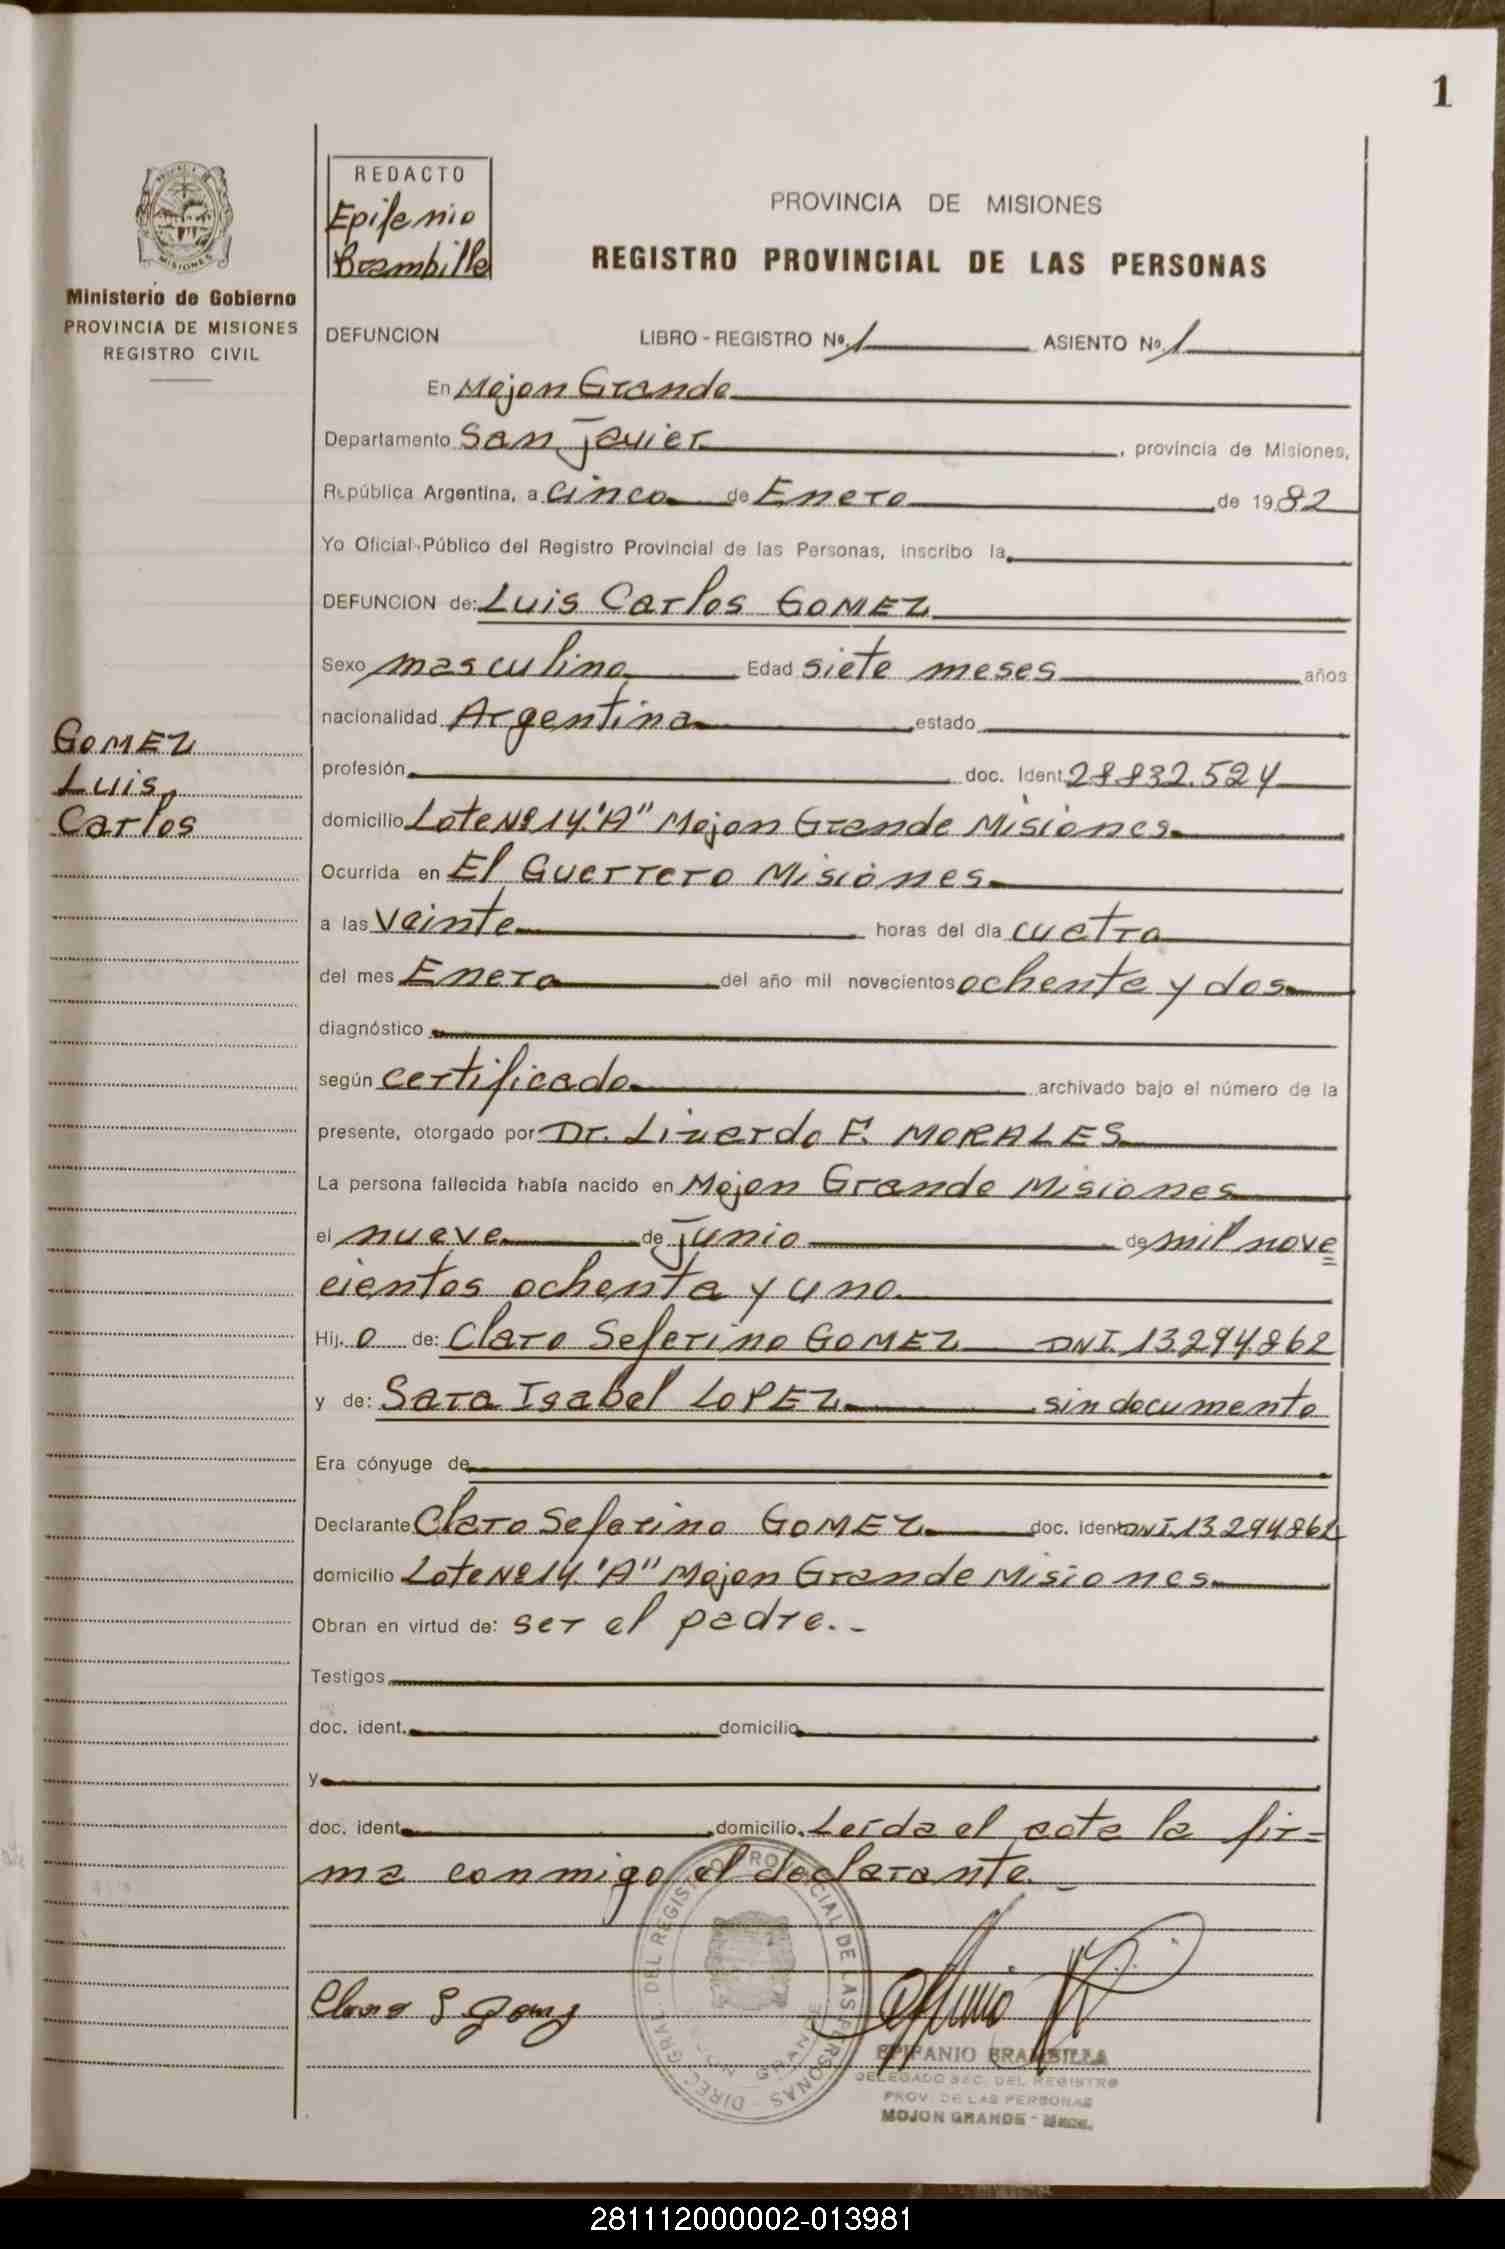 1
REDACTO
Epifanio
Brambilla
PROVINCIA DE MISIONES
REGISTRO PROVINCIAL DE LAS PERSONAS
MISIONES
Ministerio de Gobierno
PROVINCIA DE MISIONES
REGISTRO CIVIL
DEFUNCION LIBRO - REGISTRO Nº 1 ASIENTO Nº 1
En Mojon Grande
Departamento San Javier, provincia de Misiones,
República Argentina, a cinco de Enero de 1982
Yo Oficial Público del Registro Provincial de las Personas, inscribo la
DEFUNCION de: Luis Carlos GOMEZ
Sexo masculino Edad siete meses años
nacionalidad Argentina estado
GOMEZ
Luis
Carlos
profesión doc. Ident. 28832.524
domicilio Lote Nº 14 "A" Mojon Grande Misiones
Ocurrida en El Guerrero Misiones
a las veinte horas del día cuatro
del mes Enero del año mil novecientos ochenta y dos
diagnóstico
según certificado archivado bajo el número de la
presente, otorgado por Dr. Lizardo F. MORALES
La persona fallecida había nacido en Mojon Grande Misiones
el nueve de junio de mil nove
cientos ochenta y uno
Hij o de: Claro Seferino GOMEZ DNI. 13.294.862
y de: Sara Isabel LOPEZ sin documento
Era cónyuge de
Declarante Claro Seferino GOMEZ doc. ident DNI. 13294862
domicilio Lote Nº 14 "A" Mojon Grande Misiones
Obran en virtud de: ser el padre.-
Testigos
doc. ident. domicilio
y
doc. ident. domicilio. Leída el acta la fir=
ma conmigo el declarante.-
DIREC. GRAL. DEL REGISTRO PROVINCIAL DE LAS PERSONAS
MOJON GRANDE
Claro S Gomez
EPIFANIO BRAMBILLA
DELEGADO SEC. DEL REGISTRO
PROV. DE LAS PERSONAS
MOJON GRANDE - Mnes.
281112000002-013981